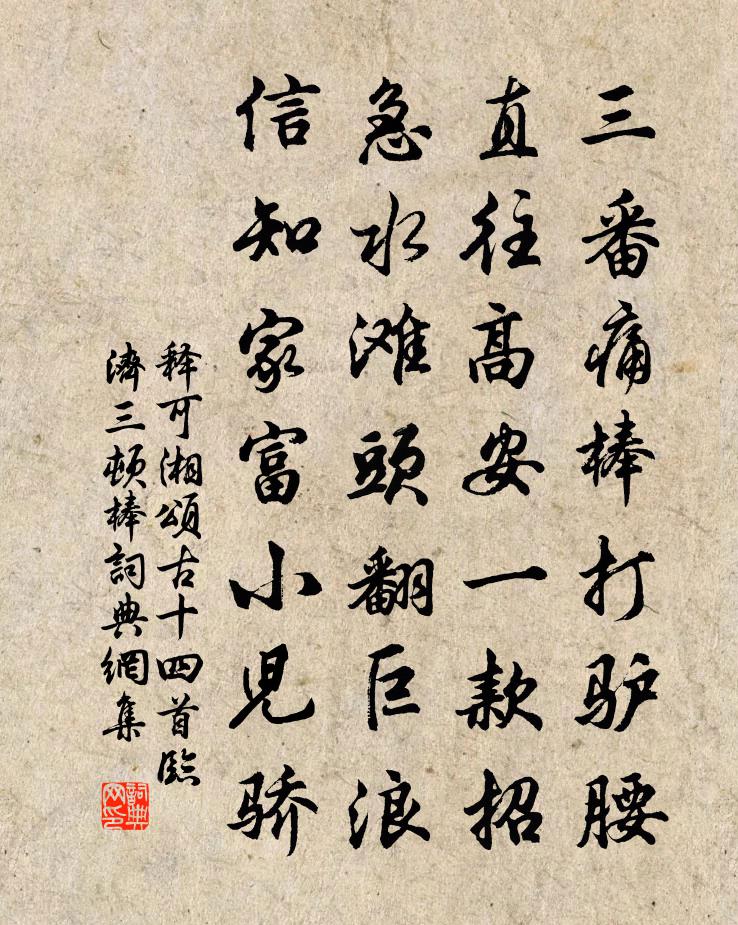 三番痛棒打驴腰
直往高安一款招
急水滩頭翻巨浪
信知家富小児骄
释可湘頌古十四首臨
濟三顿棒詞典網集
詞典
网印